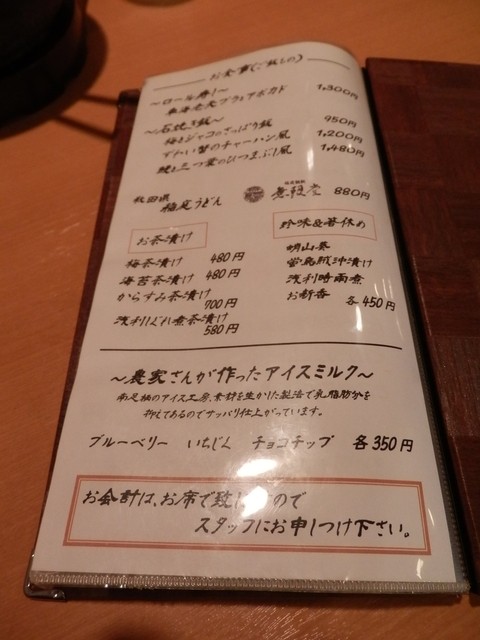 お食事(ご飯もの)
〜ロール寿し〜
車海老天プラとアボカド 1,300円
〜石焼き飯〜
梅とジャコのさっぱり飯 950円
ずわい蟹のチャーハン風 1,200円
鰻と三つ葉のひつまぶし風 1,480円
秋田県
稲庭うどん 無限堂 880円
お茶漬け
梅茶漬け 480円
海苔茶漬け 480円
からすみ茶漬け
700円
浅利しぐれ煮茶漬け
580円
珍味&箸休め
明山葵
蛍烏賊沖漬け
浅利時雨煮
お新香 各450円
〜農家さんが作ったアイスミルク〜
南足柄のアイス工房、素材を生かした製法で乳脂肪分を
抑えてあるのでサッパリ仕上がっています。
ブルーベリー いちじく チョコチップ 各350円
お会計は、お席で致しますので
スタッフにお申しつけ下さい。